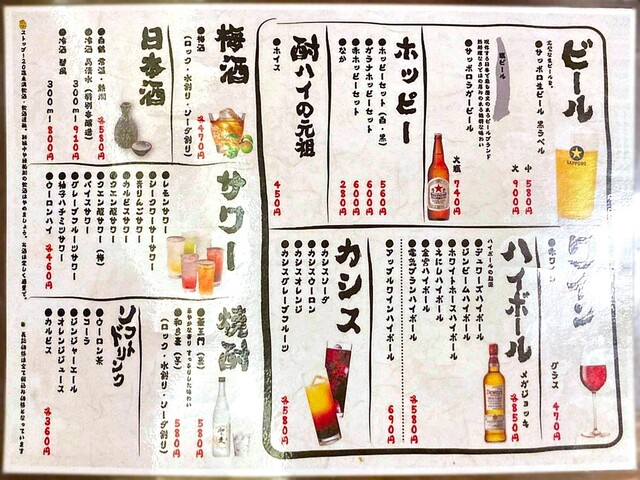 ビール
心に生ビールを。
●サッポロ生ビール 黒ラベル
中 580円
大 900円
瓶ビール
●サッポロラガービール
大瓶 740円
ホッピー
●ホッピーセット（白・黒） 560円
●ガラナホッピーセット 600円
●赤ホッピーセット 600円
●なか 280円
酎ハイの元祖
●ホイス 450円
ワイン
グラス 470円
ハイボール
メガジョッキ 各850円
●デュワーズハイボール
●ジンビームハイボール
●ホワイトホースハイボール
●えにしハイボール
●金宮ハイボール
●電気ブランハイボール
各580円
●アップルワインハイボール 690円
カシス
●カシスソーダ
●カシスウーロン
●カシスオレンジ
●カシスグレープフルーツ
各580円
梅酒
●梅酒
（ロック・水割り・ソーダ割り）
各470円
日本酒
●白鶴 常温・熱燗 各580円
300ml 910円
300ml 800円
サワー
●レモンサワー
●シークワーサーサワー
●青りんごサワー
●カルピスサワー
●クエン酸サワー
●クエン酸サワー（梅）
●バイスサワー
●グレープフルーツサワー
●柚子ハチミツサワー
●ウーロンハイ
各460円
焼酎
580円
580円
（ロック・水割り・ソーダ割り）
ソフトドリンク
●ウーロン茶
●コーラ
●ジンジャーエール
●オレンジジュース
●カルピス
各360円